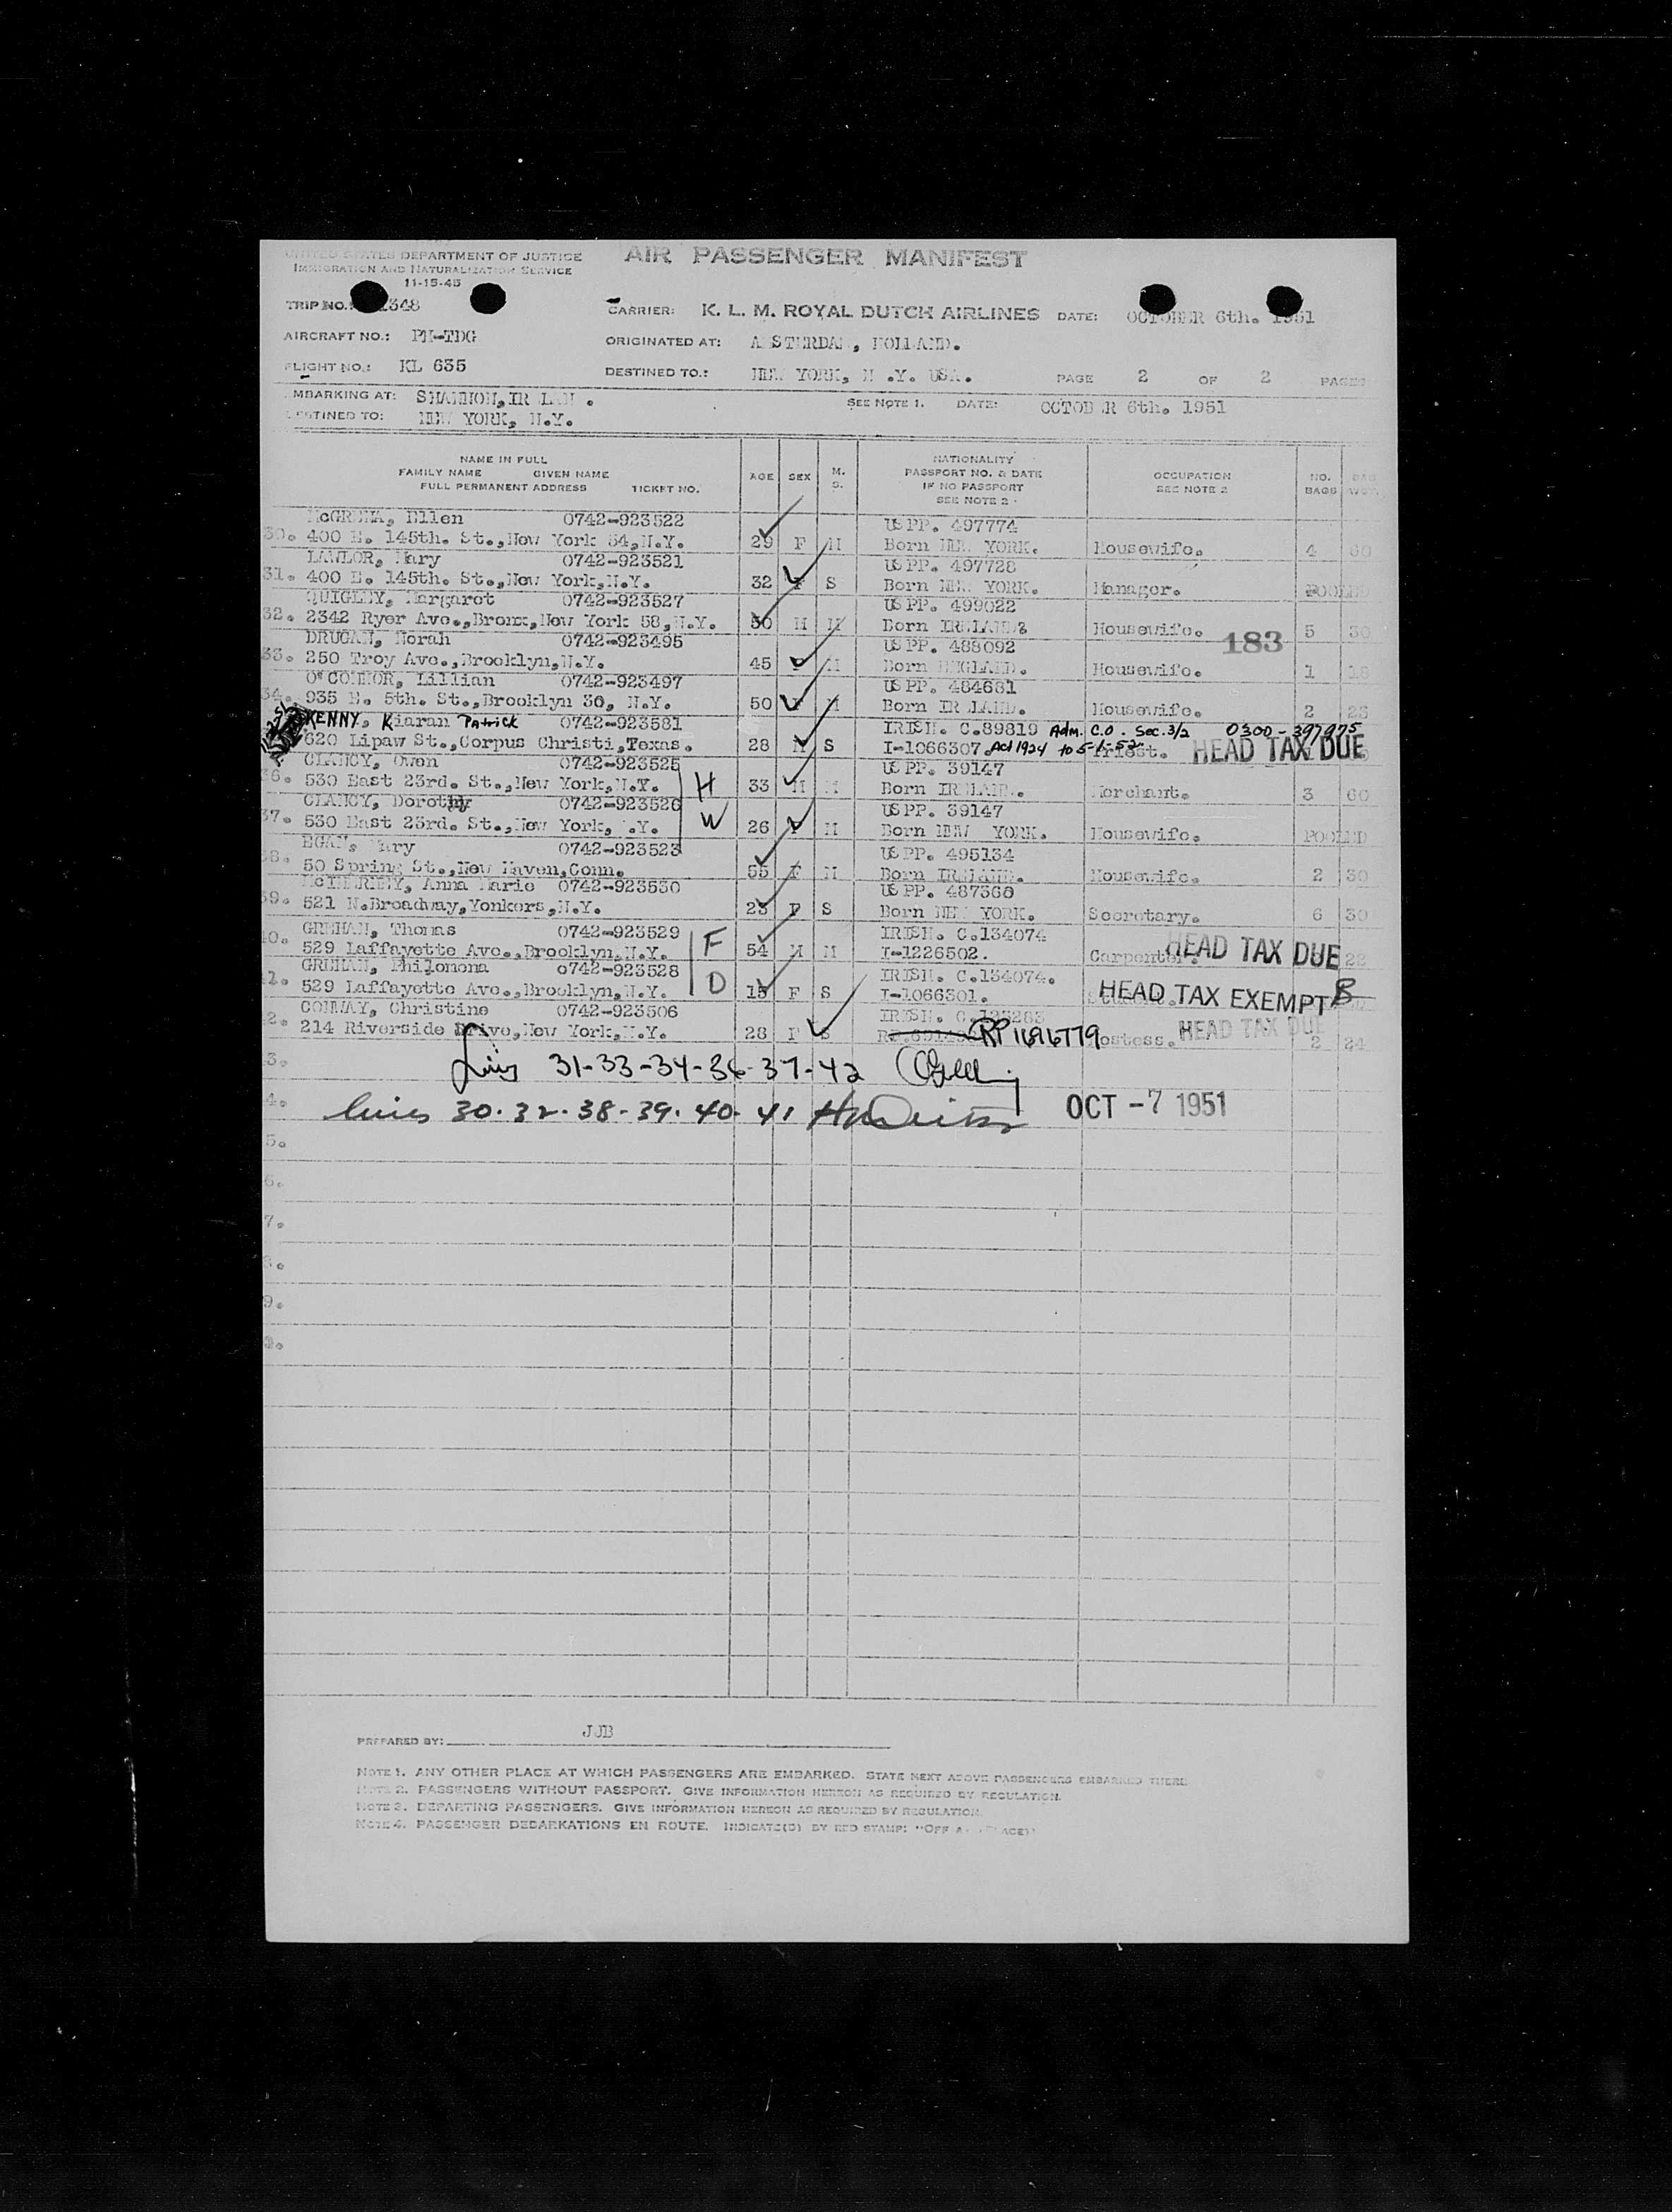 UNITED STATES DEPARTMENT OF JUSTICE
IMMIGRATION AND NATURALIZATION SERVICE
11-15-45
AIR PASSENGER MANIFEST
TRIP NO.: 348
CARRIER: K. L. M. ROYAL DUTCH AIRLINES DATE: OCTOBER 6th. 1951
AIRCRAFT NO.: PH-TDG
ORIGINATED AT: AMSTERDAM, HOLLAND.
FLIGHT NO.: KL 635
DESTINED TO.: NEW YORK, N.Y. USA. PAGE 2 OF 2 PAGES
EMBARKING AT: SHANNON, IRELAND. SEE NOTE 1. DATE: OCTOBER 6th. 1951
DESTINED TO: NEW YORK, N.Y.
NAME IN FULL
FAMILY NAME GIVEN NAME
FULL PERMANENT ADDRESS TICKET NO.
AGE SEX M. S.
NATIONALITY
PASSPORT NO. & DATE
IF NO PASSPORT
SEE NOTE 2
OCCUPATION
SEE NOTE 2
NO. BAGS BAG WGT.
Ellen 0742-923522 US PP. 497774
30. 400 E. 145th. St.,New York 54,N.Y. 29 F M Born NEW YORK. Housewife. 4 60
LAWLOR, Mary 0742-923521 US PP. 497728
31. 400 E. 145th. St.,New York,N.Y. 32 F S Born NEW YORK. Manager. POOLED
QUIGLEY, Margaret 0742-923527 US PP. 499022
32. 2342 Ryer Ave.,Bronx,New York 58,N.Y. 50 M M Born IRELAND. Housewife. 5 30
183
DRUGAN, Norah 0742-923495 US PP. 488092
33. 250 Troy Ave.,Brooklyn,N.Y. 45 F M Born ENGLAND. Housewife. 1 18
O'CONNOR, Lillian 0742-923497 US PP. 484681
34. 935 E. 5th. St.,Brooklyn 30, N.Y. 50 F M Born IRELAND. Housewife. 2 23
KENNY, Kiaran Patrick 0742-923581 IRISH. C.89819 Adm. C.O. Sec. 3/2 0300-397975
620 Lipaw St.,Corpus Christi,Texas. 28 M S I-1066307. Act 1924 to 5-1-52 Priest. HEAD TAX DUE
CLANCY, Owen 0742-923525 US PP. 39147
36. 530 East 23rd. St.,New York,N.Y. H 33 M M Born IRELAND. Merchant. 3 60
CLANCY, Dorothy 0742-923526 US PP. 39147
37. 530 East 23rd. St.,New York, N.Y. W 26 F M Born NEW YORK. Housewife. POOLED
EGAN, Mary 0742-923523 US PP. 495134
38. 50 Spring St.,New Haven,Conn. 55 F M Born IRELAND. Housewife. 2 30
McINERNEY, Anna Marie 0742-923530 US PP. 487360
39. 521 N.Broadway,Yonkers,N.Y. 23 F S Born NEW YORK. Secretary. 6 30
GREHAN, Thomas 0742-923529 IRISH. C.134074
40. 529 Laffayette Ave.,Brooklyn,N.Y. F 54 M M I-1226502. Carpenter. HEAD TAX DUE 22
GREHAN, Philomena o742-923528 IRISH. C.134074.
41. 529 Laffayette Ave.,Brooklyn,N.Y. D 15 F S I-1066301. HEAD TAX EXEMPT B
CONWAY, Christine 0742-923506 IRISH.
42. 214 Riverside Drive,New York,N.Y. 28 F S RP 1696779 Hostess. HEAD TAX DUE 2 24
3. Lines 31-33-34-36-37-42
4. lines 30-32-38-39-40-41 OCT -7 1951
5.
6.
7.
8.
9.
PREPARED BY: JJB
NOTE 1. ANY OTHER PLACE AT WHICH PASSENGERS ARE EMBARKED. STATE NEXT ABOVE PASSENGERS EMBARKED THERE.
NOTE 2. PASSENGERS WITHOUT PASSPORT. GIVE INFORMATION HEREON AS REQUIRED BY REGULATION.
NOTE 3. DEPARTING PASSENGERS. GIVE INFORMATION HEREON AS REQUIRED BY REGULATION.
NOTE 4. PASSENGER DEBARKATIONS EN ROUTE. INDICATE(D) BY RED STAMP: "OFF AT (PLACE)"